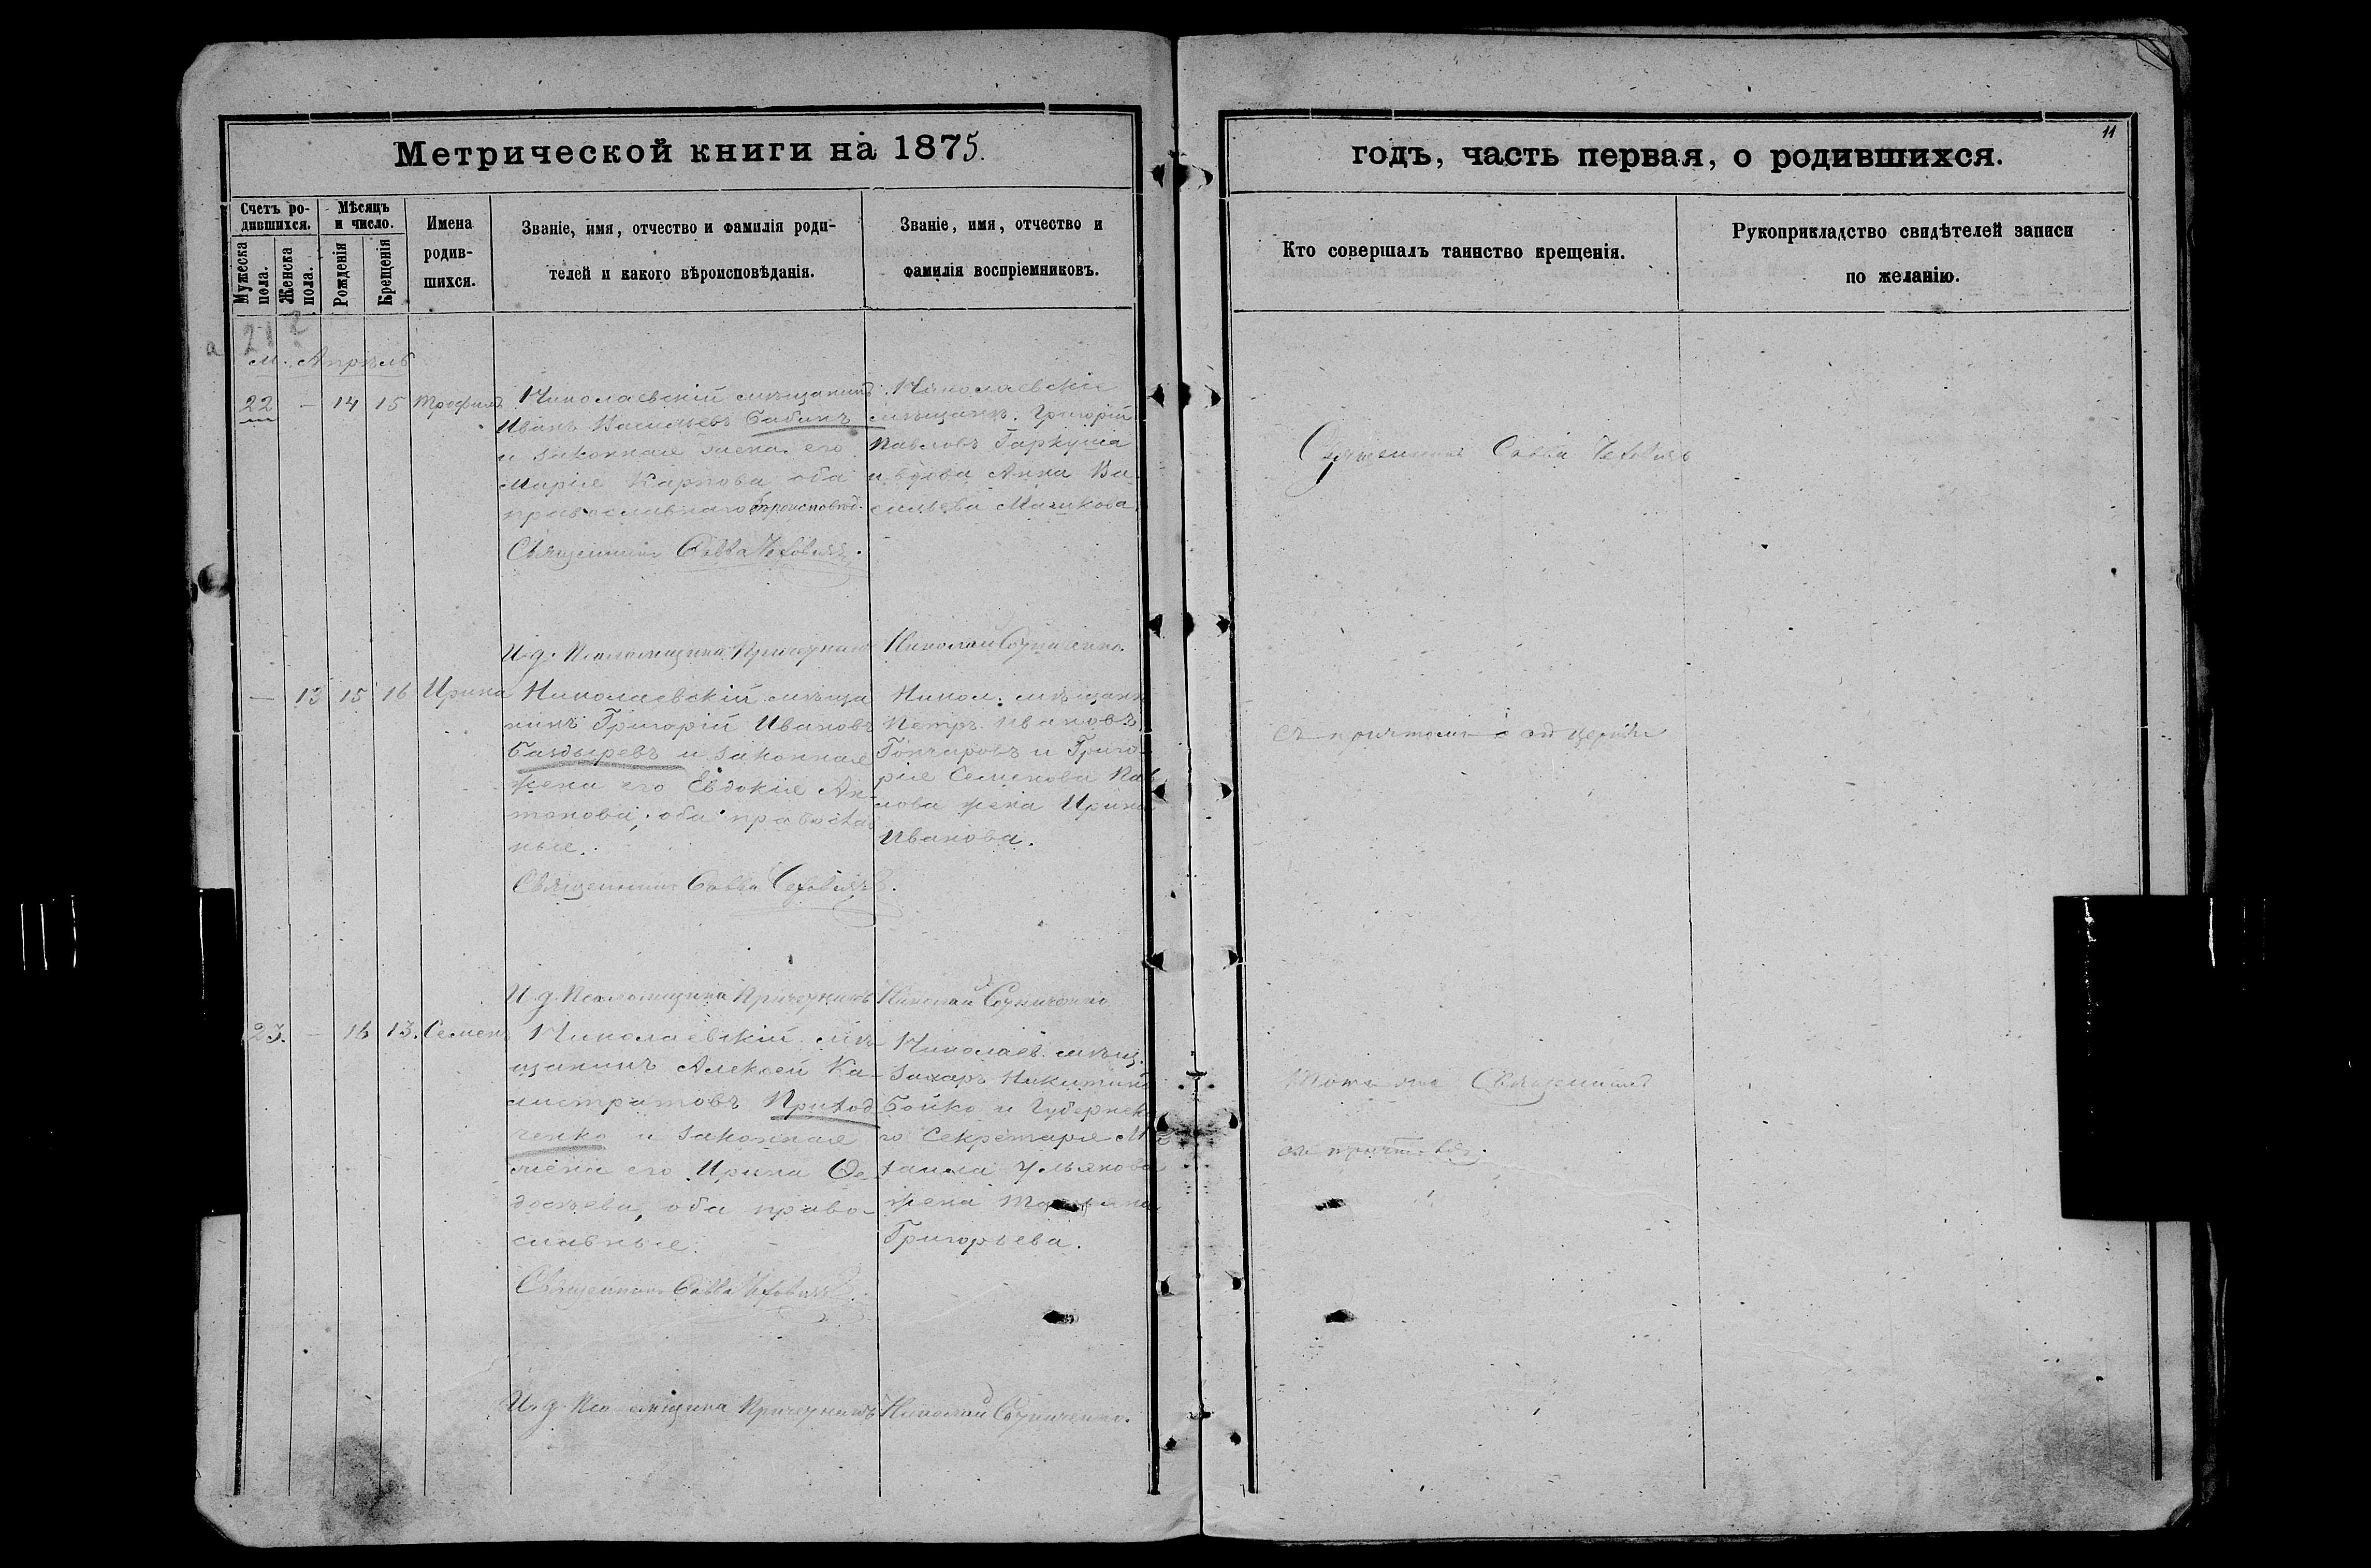 Метрической книги на 1875.
годъ, часть первая, о родившихся.
11
Счетъ ро-
дившихся.
Мѣсяцъ
и число.
Мужеска
пола.
Женска
пола.
Рожденія
Крещенія
Имена
родив-
шихся.
Званіе, имя, отчество и фамилія роди-
телей и какого вѣроисповѣданія.
Званіе, имя, отчество и
фамилія воспріемниковъ.
Кто совершалъ таинство крещенія.
Рукоприкладство свидѣтелей записи
по желанію.
м. Апрѣль
22 – 14 15 Трофимъ
Николаевскій мѣщанинъ
Иванъ Васильевъ Бабинъ
и законная жена его
Марія Карпова оба
православнаго вѣроисповѣд.
Священникъ Савва
Николаевскіе
мѣщане. Григорій
Павловъ Гаркуша
и вдова Анна Ва-
сильева
Священникъ Савва
И. д. Псаломщика Причетникъ Николай
– 13 15 16 Ирина
Николаевскій мѣща
нинъ Григорій Ивановъ
Баздыревъ и законная
жена его Евдокія Ан-
тонова, оба православ
ные.
Священникъ Савва
Никол. мѣщан
Петръ Ивановъ
Гончаровъ и Григо-
рія Семенова Пав
лова жена Ирина
Иванова.
съ причтомъ
И. д. Псаломщика Причетникъ Николай
23. – 16 13. Семенъ
Николаевскій мѣ-
щанинъ Алексей Ка-
листратовъ Приход
ченко и законная
жена его Ирина Ѳе-
досѣева, оба право-
славные.
Священникъ Савва
Николаев. мѣщ.
Захаръ Никитинъ
Бойко и Губернск
го Секретаря Ми
хаила Ульянова
жена
Григорьева.
Тотъ же Священникъ
И. д. Псаломщика Причетникъ Николай